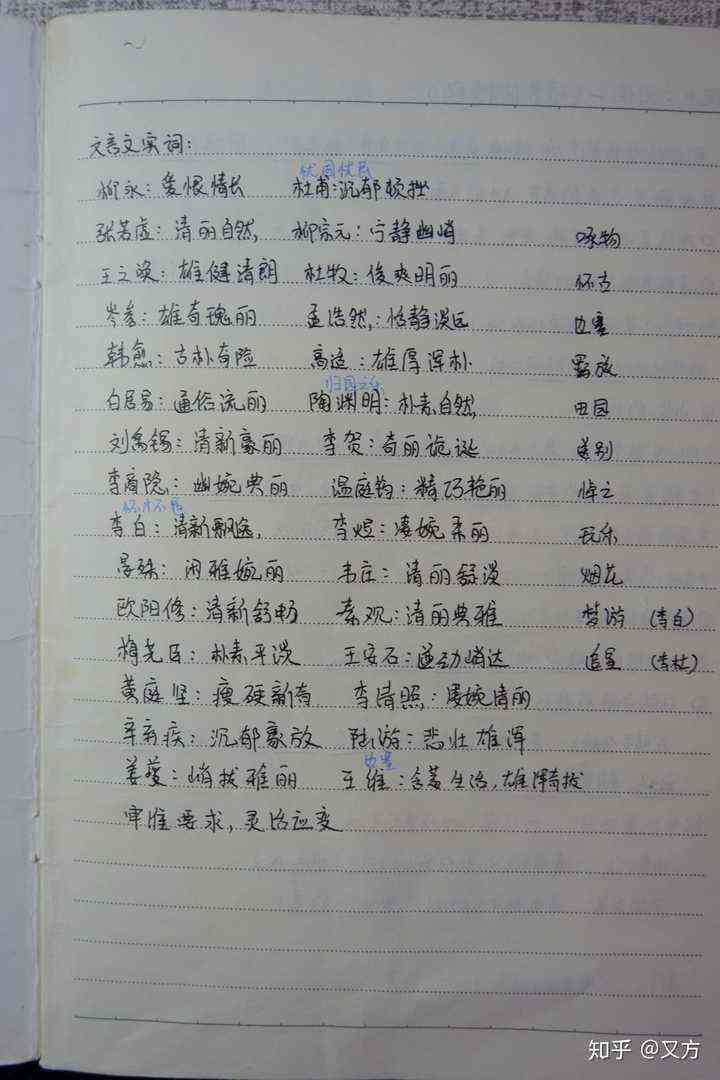 文言文实词:
忧国忧民
柳永: 爱恨情长 杜甫: 沉郁顿挫
张若虚: 清丽自然, 柳宗元: 宁静幽峭 咏物
王之涣: 雄健清朗 杜牧: 俊爽明丽 怀古
岑参: 雄奇瑰丽 孟浩然: 恬静淡远 边塞
韩愈: 古朴奇险 高适: 雄厚浑朴 豪放
归园之乐
白居易: 通俗流丽 陶渊明: 朴素自然, 田园
刘禹锡: 清新豪丽 李贺: 奇丽诡诞 送别
李商隐: 幽婉典丽 温庭筠: 精巧艳丽 悼亡
怀才不遇
李白: 清新飘逸, 李煜: 凄婉柔丽 玩乐
晏殊: 闲雅婉丽 韦庄: 清丽舒淡 烟花
欧阳修: 清新舒畅 秦观: 清丽典雅 梦游 (李白)
梅尧臣: 朴素平淡 王安石: 遒劲峭达 追星 (李杜)
黄庭坚: 瘦硬新奇 李清照: 凄婉清丽
辛弃疾: 沉郁豪放 陆游: 悲壮雄浑
边塞
姜夔: 峭拔雅丽 王维: 含蓄生活, 雄浑奇拔
审准要求, 灵活应变
知乎 @又方